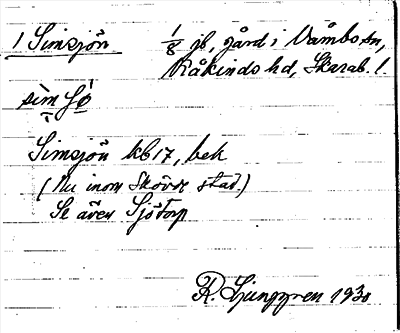 1 Simsjön 1/8 jb, gård i Våmbs sn,
Kåkinds hd, Skarab. l.
sìm ʃö̀
Simsjön kb 17, bek
(Nu inom Skövde stad.)
Se även Sjötorp
R. Ljunggren 1930